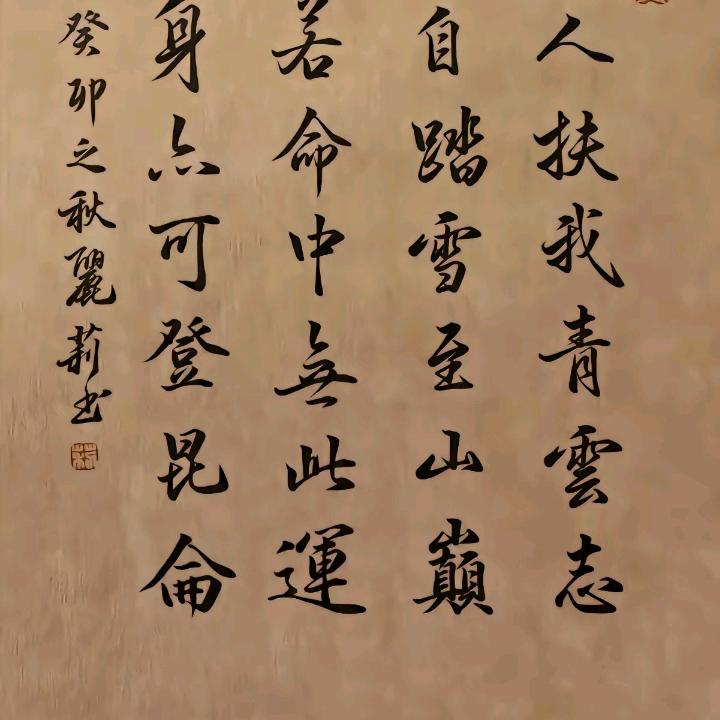 人扶我青雲志
自踏雪至山巔
若命中無此運
身亦可登昆侖
癸卯之秋麗莉书